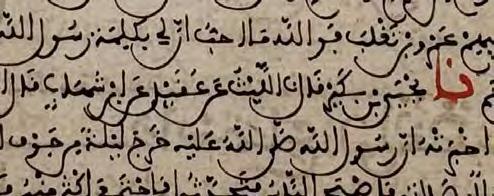 فيهم عمرو بن تغلب فوالله ما احب ان لي بكلمة رسول الله
نا يحيى بن بكير قال نا الليث عن عقيل عن ابن شهاب قال
اخبرته ان رسول الله صلى الله عليه خرج ليلة من جوف
فاصبح الناس فتحدثوا فاجتمع اكثر منهم